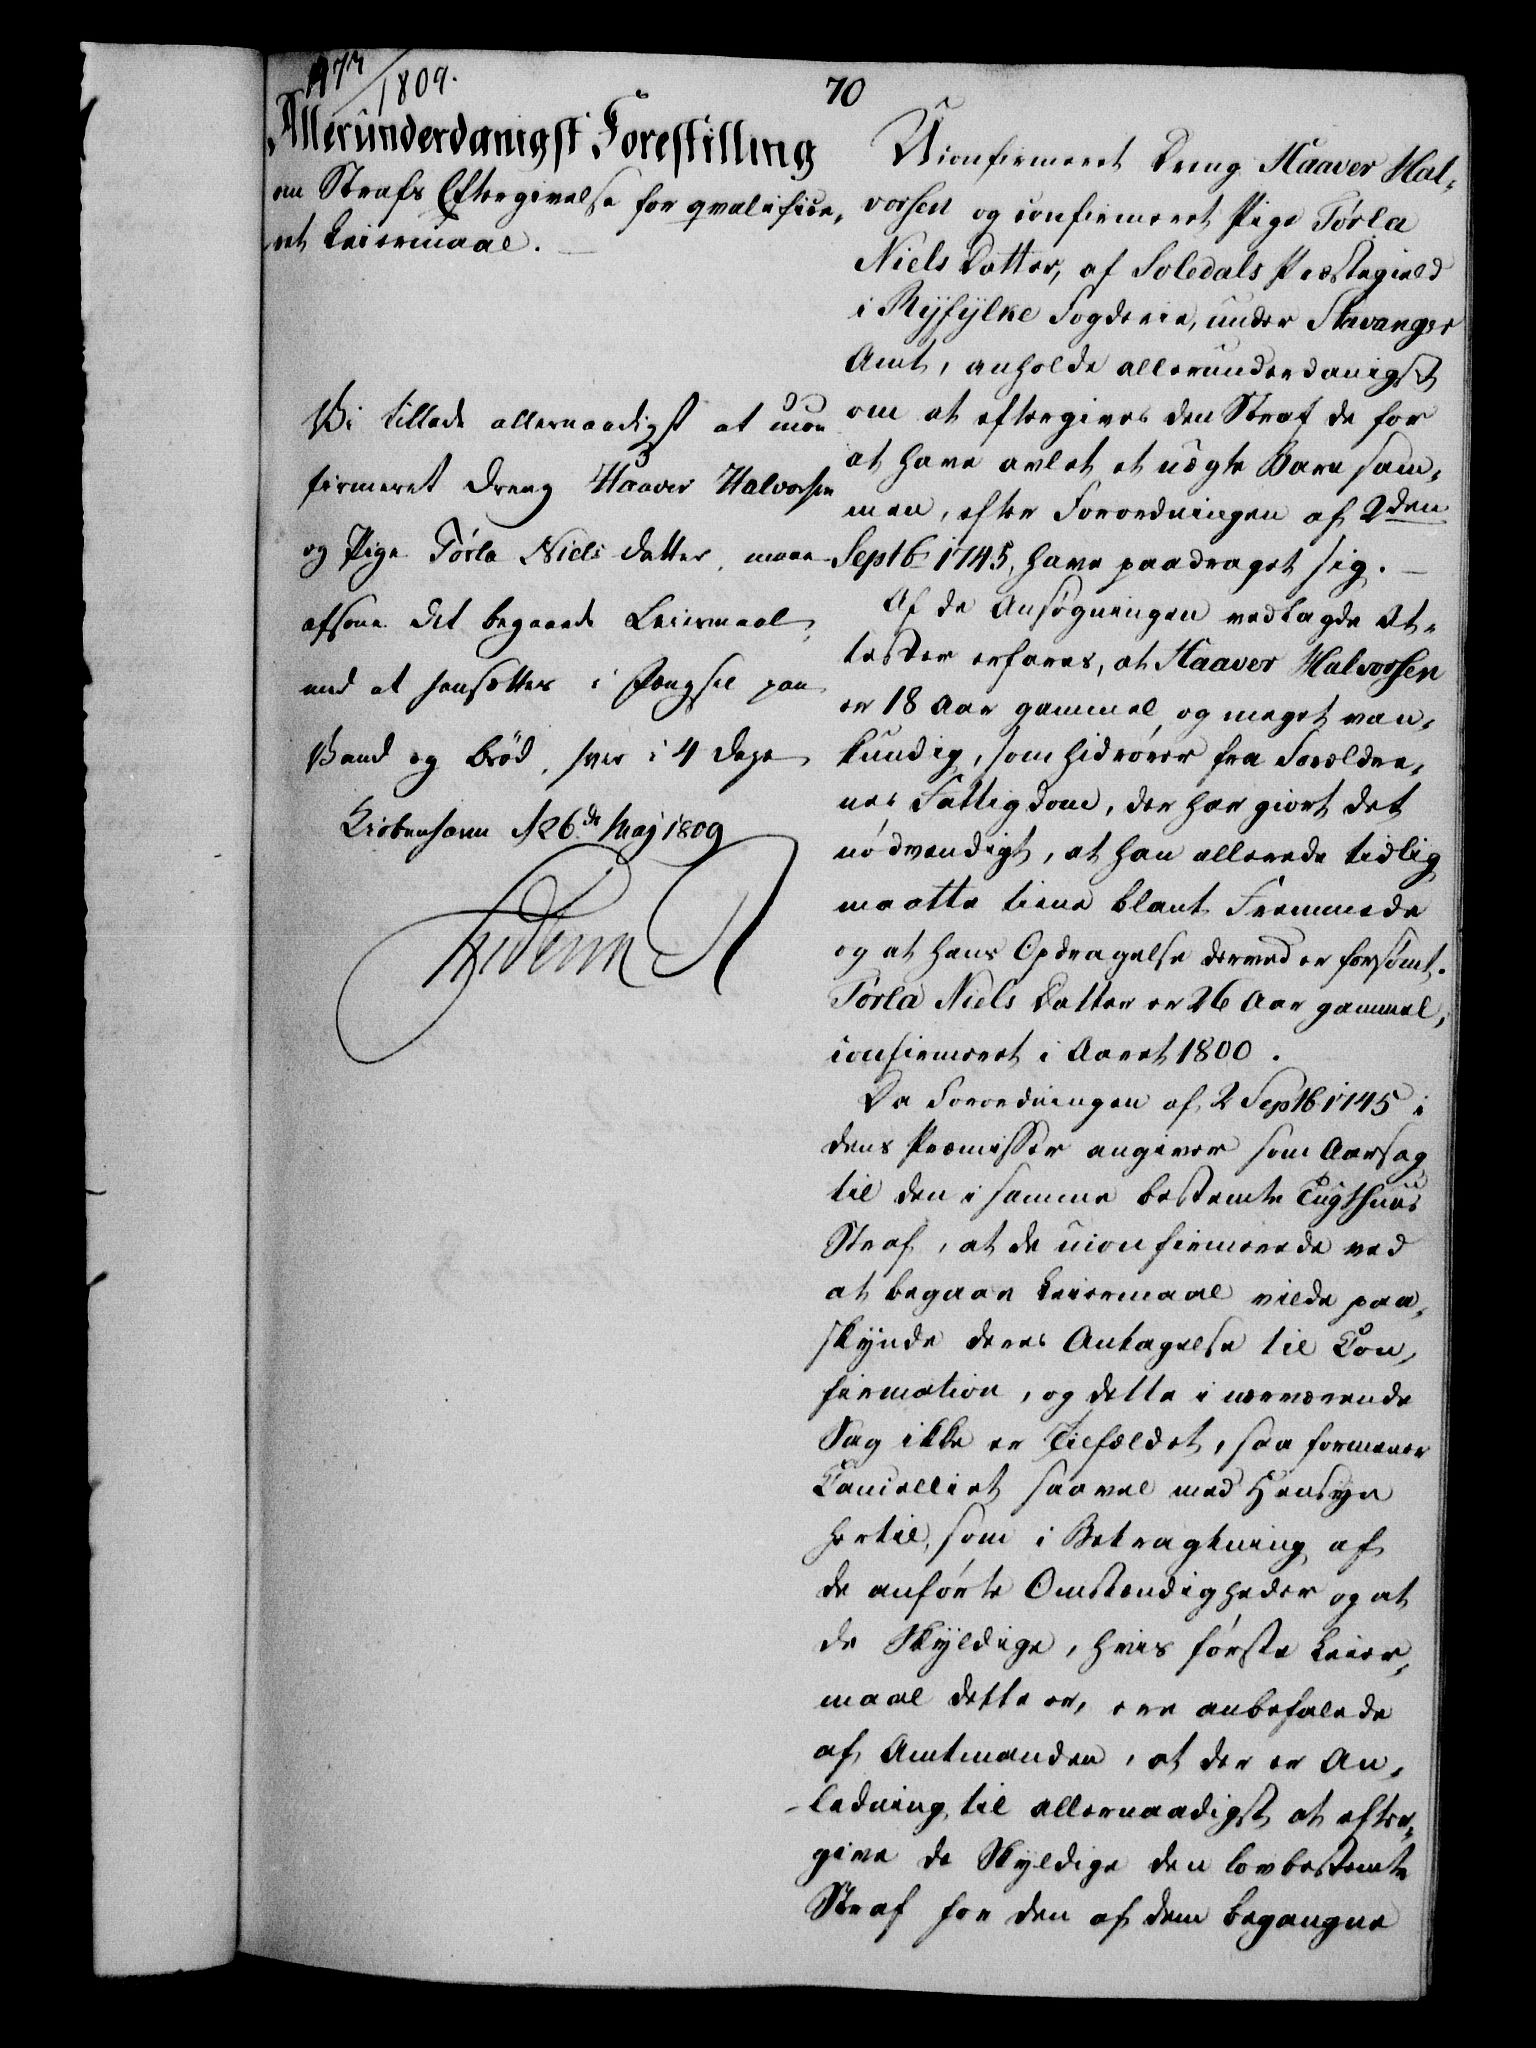 477/1809.
70
Allerunderdanigst Forestilling
om Strafs Eftergivelse for qvalifice,
ret Leiermaal.
Vi tillade allernaadigst at ucon
firmeret Dreng Haaver Halvorsen
og Pige Törla Niels Datter, maae
afsone det begaaede Leiermaal,
ved at hensættes i Fængsel paa
Vand og Bröd, hver i 4 Dage
Kiöbenhavn d 26de Maj 1809
Friderich R
Uconfirmeret Dreng Haaver Hal,
vorsen og confirmeret Pige Törla
Niels Datter, af Soledals Præstegield
i Ryfylke Fogderie, under Stavanger
Amt, anholde allerunderdanigst
om at eftergives den Straf de for
at have avlet et uægte Barn sam,
men, efter Forordningen af 2den
Septb 1745, have paadraget sig.
Af de Ansøgningen vedlagde At,
tester erfares, at Haaver Halvorsen
er 18 Aar gammel, og meget van,
kundig, som hidrörer fra Forældre,
nes Fattigdom, der har giort det
nödvendigt, at han allerede tidlig
maatte tiene blant Fremmede
og at hans Opdragelse derved er forsömt.
Törla Niels Datter er 26 Aar gammel,
confirmeret i Aaret 1800.
Da Forordningen af 2 Septb 1745 i
dens Præmisser angiver som Aarsag
til den i samme bestemte Tugthuus
Straf, at de uconfirmerede ved
at begaae Leiermaal vilde paa,
skynde deres Antagelse til Con,
firmation, og dette i nærværende
Sag ikke er Tilfældet, saa formener
Cancelliet saavel med Hensyn
hertil, som i Betragtning af
de anförte Omstændigheder og at
de Skyldige, hvis förste Leier,
maal dette er, ere anbefalede
af Amtmanden, at der er An,
ledning til allernaadigst at efter,
give de Skyldige den lovbestemte
Straf for den af dem begangne